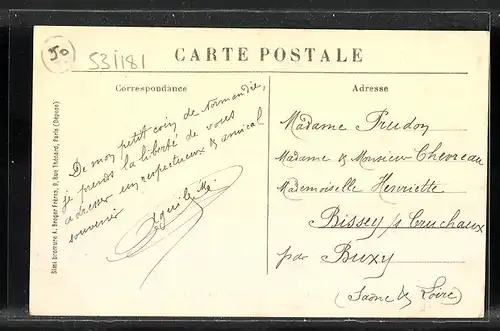 50
53/181
CARTE POSTALE
Correspondance
Adresse
De mon petit coin de Normandie,
je prends la liberté de vous
adresser un respectueux & amical
souvenir
Madame Prudon
Madame & Monsieur Chevreau
Mademoiselle Henriette
Bissey s/s Cruchaux
par Buxy
(Saone & Loire)
Simi Bromure A. Breger Frères, 9, Rue Thénard, Paris (Déposé)